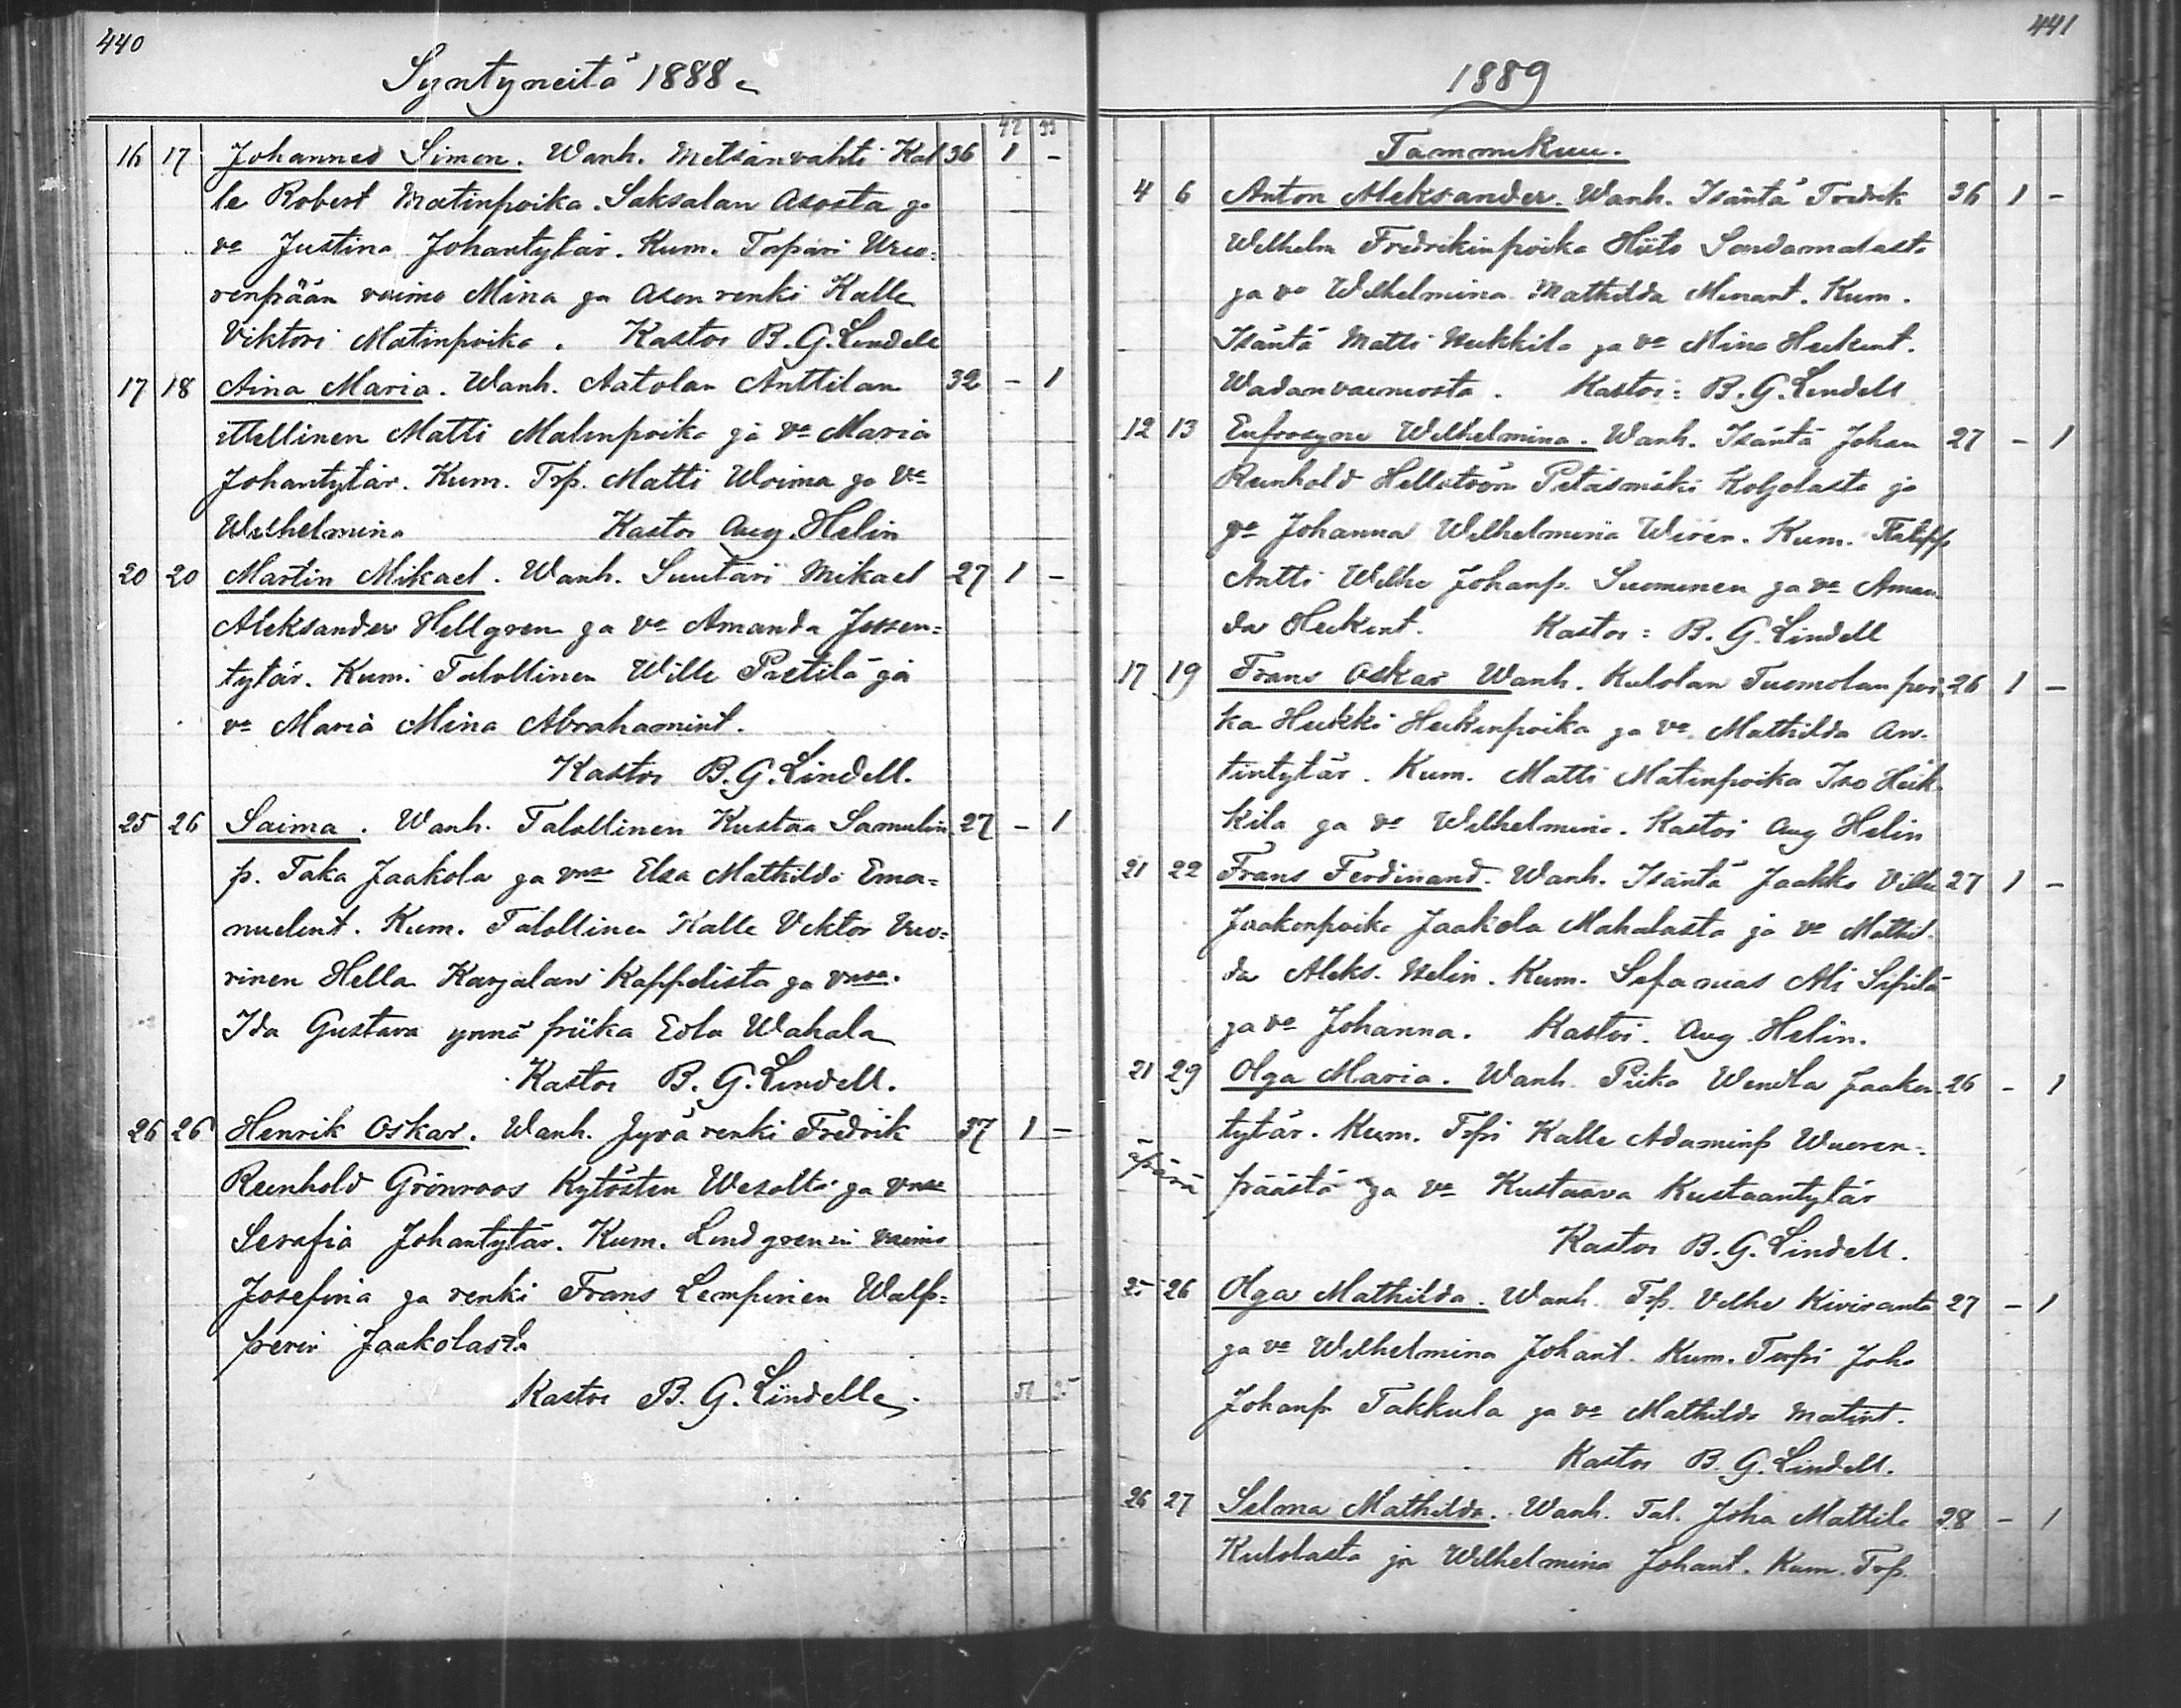 440
Syntyneitä 1888
42 33
16 17 Johannes Simon. Wanh. Metsänvahti Kal 36 1 -
le Robert Matinpoika. Saksalan Asosta ja
vo Justina Johantytär. Kum. Torpari Wuo=
renpään vaimo Mina ja Ason renki Kalle
Viktori Matinpoika. Kastoi B. G. Lindell
17 18 Aina Maria. Wanh. Aatolan Anttilan 32 - 1
ittellinen Matti Matinpoika ja vo Maria
Johantytär. Kum. Torp. Matti Woima ja vo
Wilhelmina Kastoi Aug. Helin
20 20 Martin Mikael. Wanh. Suutari Mikael 27 1 -
Aleksander Hellgren ja vo Amanda Jossen=
tytär. Kum. Talollinen Wille Pietilä ja
vo Maria Mina Abrahamint.
Kastoi B. G. Lindell.
25 26 Saima. Wanh. Talollinen Kustaa Samulin 27 - 1
p. Taka Jaakola ja vmo Elsa Mathilda Ema=
nuelint. Kum. Talollinen Kalle Viktor Vuo=
rinen Hella Karjalan Kappelista ja vmo.
Ida Gustava ynnä piika Eola Wahala
Kastoi B. G. Lindell.
26 26 Henrik Oskar. Wanh. Jyrä renki Fredrik 37 1 -
Reinhold Grönroos Kytösten Wesalta ja vmo
Serafia Johantytär. Kum. Lindgrenin vaimo
Josefina ja renki Frans Lempinen Walp=
perin Jaakolasta
Kastoi B. G. Lindell.
441
1889
Tammikuu.
4 6 Anton Aleksander. Wanh. Isäntä Fredrik 36 1 -
Wilhelm Fredrikinpoika Hiito Sondamalasta
ja vo Wilhelmina Mathilda Minant. Kum.
Isäntä Matti Heikkilä ja vo Mina Heikint.
Wadanvainiosta. Kastoi: B. G. Lindell
12 13 Eufrosyne Wilhelmina. Wanh. Isäntä Johan 27 - 1
Reinhold Hellström Petäsmäki Koljolasta ja
vo Johanna Wilhelmina Wiren. Kum.
Antti Wilho Johanp. Suominen ja vo Aman
da Heikint. Kastoi: B. G. Lindell
17 19 Frans Oskar Wanh. Kulolan Tuomolan poi 26 1 -
ka Heikki Heikinpoika ja vo Mathilda An=
tintytär. Kum. Matti Matinpoika Iso Heik=
kilä ja vo Wilhelmina. Kastoi Aug Helin
21 22 Frans Ferdinand. Wanh. Isäntä Jaakko Ville 27 1 -
Jaakonpoika Jaakola Mahalasta ja vo Mathil=
da Aleks. Helin. Kum. Sefanias Ali Sipilä
ja vo Johanna. Kastoi. Aug. Helin.
21 29 Olga Maria. Wanh. Piika Wendla Jaakon 26 - 1
äpärä tytär. Kum. Torpri Kalle Adaminp Wuoren=
päästä ja vo Kustaava Kustaantytär
Kastoi B. G. Lindell.
25 26 Olga Mathilda. Wanh. Torp. Vilho Kiviranta 27 - 1
ja vo Wilhelmina Johant. Kum. Torpri Joh.
Johanp Takkula ja vo Mathilda Matint.
Kastoi B. G. Lindell.
26 27 Selma Mathilda. Wanh. Tal. Joha Mattila 28 - 1
Kulolasta ja Wilhelmina Johant. Kum. Torp.